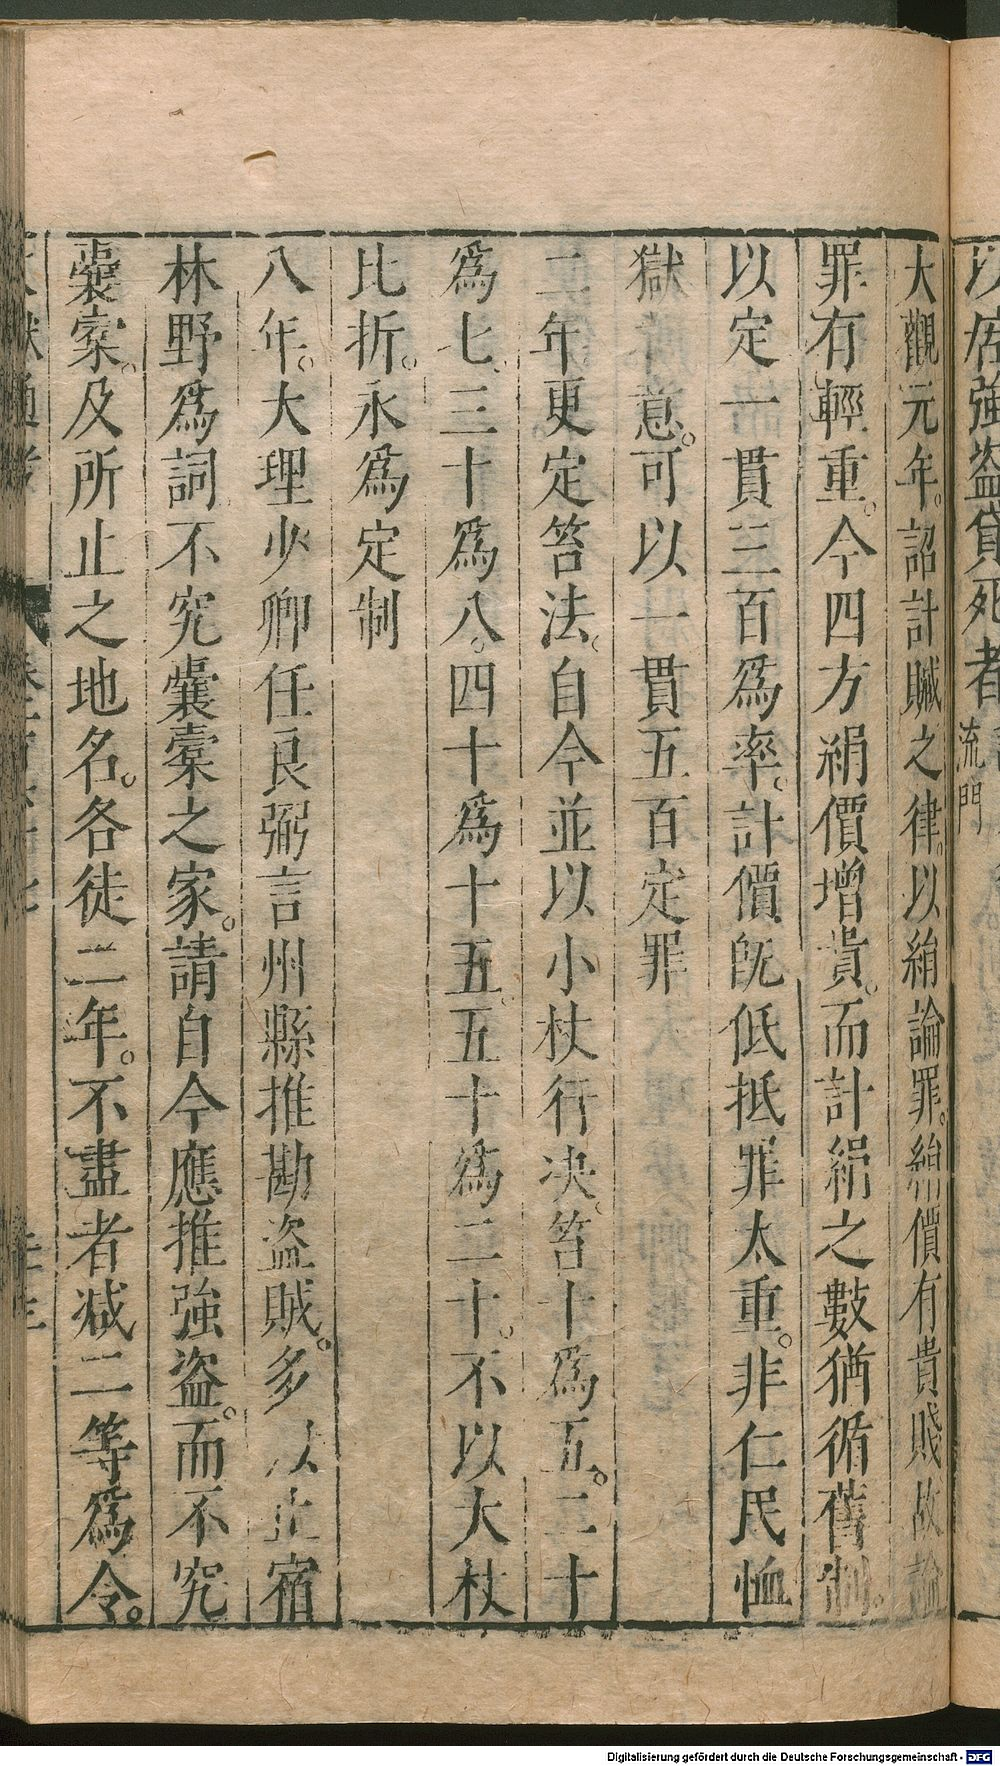 以居強盜貸死者
流門
大觀元年。詔計贓之律。以絹論罪。絹價有貴賤故論
罪有輕重。今四方絹價增貴。而計絹之數猶循舊制。
以定一貫三百爲率。計價旣低抵罪太重。非仁民恤
獄 意。可以一貫五百定罪
二年更定笞法。自今並以小杖行決。笞十爲五。二十
爲七、三十爲八。四十爲十五。五十爲二十。不以大杖
比折。永爲定制
八年。大理少卿任良弼言州縣推勘盜賊。多以止宿
林野爲詞不究囊橐之家。請自今應推強盜。而不究
囊橐。及所止之地名。各徒二年。不盡者减二等爲令。
Digitalisierung gefördert durch die Deutsche Forschungsgemeinschaft - DFG